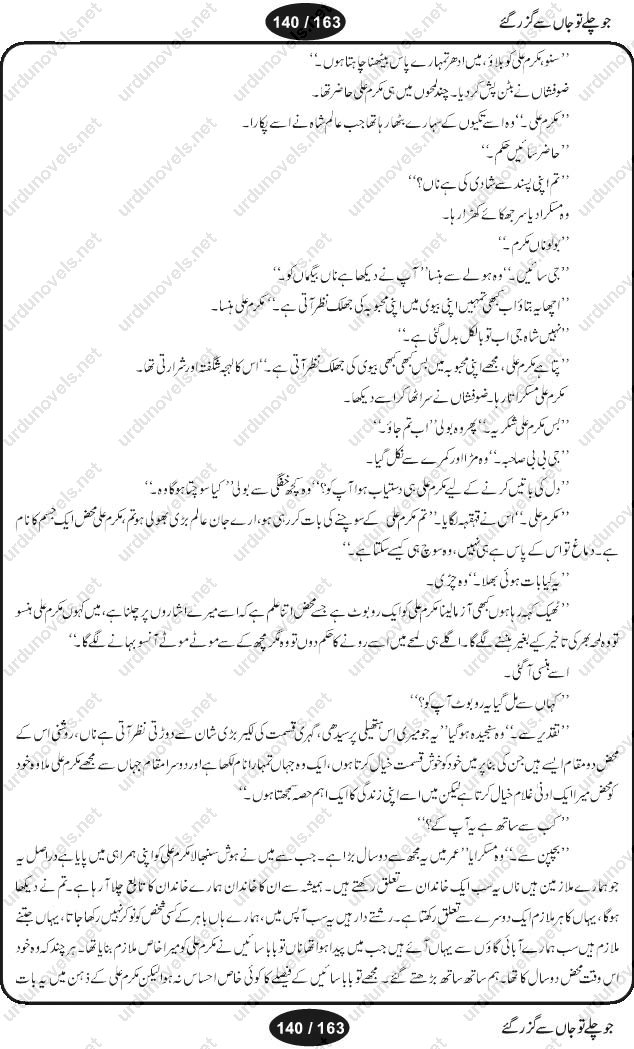 جو چلے تو جاں سے گزر گئے
140 / 163
’’سنو، مکرم علی کو بلاؤ، میں ادھر تمہارے پاس بیٹھنا چاہتا ہوں۔‘‘
ضوفشاں نے بٹن پش کر دیا۔ چند لمحوں میں ہی مکرم علی حاضر تھا۔
’’مکرم علی۔‘‘ وہ اسے تکیوں کے سہارے بٹھا رہا تھا جب عالم شاہ نے اسے پکارا۔
’’حاضر سائیں حکم۔‘‘
’’تم اپنی پسند سے شادی کی ہے ناں؟‘‘
وہ مسکرا دیا سر جھکائے کھڑا رہا۔
’’بولو ناں مکرم۔‘‘
’’جی سائیں۔‘‘ وہ ہولے سے ہنسا ’’آپ نے دیکھا ہے ناں بیگماں کو۔‘‘
’’اچھا یہ بتاؤ اب کبھی تمہیں اپنی بیوی میں اپنی محبوبہ کی جھلک نظر آتی ہے۔‘‘ مکرم علی ہنسا۔
’’نہیں شاہ جی اب تو بالکل بدل گئی ہے۔‘‘
’’پتا ہے مکرم علی، مجھے اپنی محبوبہ میں بس کبھی کبھی بیوی کی جھلک نظر آتی ہے۔‘‘ اس کا لہجہ شگفتہ اور شرارتی تھا۔
مکرم علی مسکراتا رہا۔ ضوفشاں نے سر اٹھا کر اسے دیکھا۔
’’بس مکرم علی شکریہ۔‘‘ پھر وہ بولی ’’اب تم جاؤ۔‘‘
’’جی بی بی صاحبہ۔‘‘ وہ مڑا اور کمرے سے نکل گیا۔
’’دل کی باتیں کرنے کے لیے مکرم علی ہی دستیاب ہوا آپ کو؟‘‘ وہ کچھ خفگی سے بولی ’’کیا سوچتا ہو گا وہ۔‘‘
’’مکرم علی۔‘‘ اس نے قہقہہ لگایا۔ ’’تم مکرم علی کے سوچنے کی بات کر رہی ہو، ارے جان عالم بڑی بھولی ہو تم، مکرم علی محض ایک جسم کا نام
ہے۔ دماغ تو اس کے پاس ہے ہی نہیں، وہ سوچ ہی کیسے سکتا ہے۔‘‘
’’یہ کیا بات ہوئی بھلا۔‘‘ وہ چڑی۔
’’ٹھیک کہہ رہا ہوں کبھی آزما لینا مکرم علی کو ایک روبوٹ ہے جسے محض اتنا علم ہے کہ اسے میرے اشاروں پر چلنا ہے، میں کہوں مکرم علی ہنسو
تو وہ لمحہ بھر کی تاخیر کیے بغیر ہنسنے لگے گا۔ اگلے ہی لمحے میں اسے رونے کا حکم دوں تو وہ مگر مچھ کے سے موٹے موٹے آنسو بہانے لگے گا۔‘‘
اسے ہنسی آ گئی۔
’’کہاں سے مل گیا یہ روبوٹ آپ کو؟‘‘
’’تقدیر سے۔‘‘ وہ سنجیدہ ہو گیا ’’یہ جو میری اس ہتھیلی پر سیدھی، گہری قسمت کی لکیر بڑی شان سے دوڑتی نظر آتی ہے ناں، روشنی اس کے
محض دو مقام ایسے ہیں جن کی بنا پر میں خود کو خوش قسمت خیال کرتا ہوں، ایک وہ جہاں تمہارا نام لکھا ہے اور دوسرا مقام جہاں سے مجھے مکرم علی ملا وہ خود
کو محض میرا ایک ادنی غلام خیال کرتا ہے لیکن میں اسے اپنی زندگی کا ایک اہم حصہ سمجھتا ہوں۔‘‘
’’کب سے ساتھ ہے یہ آپ کے؟‘‘
’’بچپن سے۔‘‘ وہ مسکرایا ’’عمر میں یہ مجھ سے دو سال بڑا ہے۔ جب سے میں نے ہوش سنبھالا مکرم علی کو اپنی ہمراہی میں پایا ہے دراصل یہ
جو ہمارے ملازمین ہیں ناں یہ سب ایک خاندان سے تعلق رکھتے ہیں۔ ہمیشہ سے ان کا خاندان ہمارے خاندان کا تابع چلا آ رہا ہے۔ تم نے دیکھا
ہو گا، یہاں کا ہر ملازم ایک دوسرے سے تعلق رکھتا ہے۔ رشتے دار ہیں یہ سب آپس میں، ہمارے ہاں باہر کے کسی شخص کو نوکر نہیں رکھا جاتا، یہاں جتنے
ملازم ہیں سب ہمارے آبائی گاؤں سے یہاں آئے ہیں جب میں پیدا ہوا تھا ناں تو بابا سائیں نے مکرم علی کو میرا خاص ملازم بنایا تھا۔ ہر چند کہ وہ خود
اس وقت محض دو سال کا تھا۔ ہم ساتھ ساتھ بڑھتے گئے۔ مجھے تو بابا سائیں کے فیصلے کا کوئی خاص احساس نہ ہوا لیکن مکرم علی کے ذہن میں یہ بات
جو چلے تو جاں سے گزر گئے
140 / 163
urdunovels.net